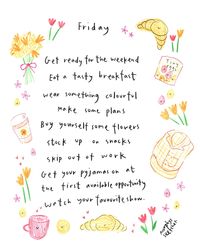 Friday
Get ready for the weekend
Eat a tasty breakfast
wear something colourful
make some plans
Buy yourself some flowers
stock up on snacks
skip out of work
Get your pyjamas on at
the first available opportunity
watch your favourite show.